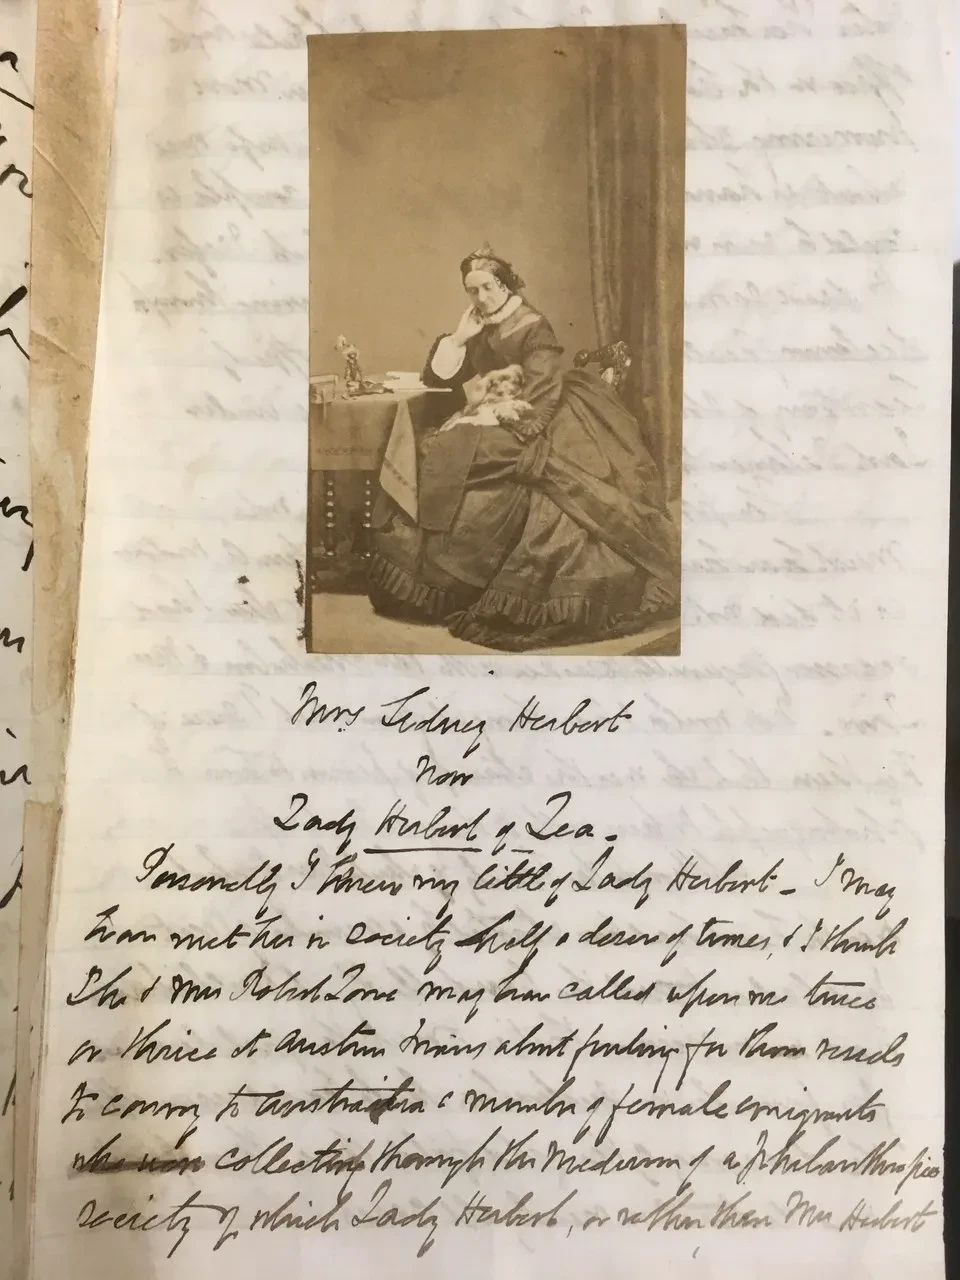 Mrs Sidney Herbert
Now
Lady Herbert of Lea.
Personally I knew very little of Lady Herbert – I may
have met her in society half a dozen of times, & I think
She & Mrs Robert Lowe may have called upon me twice
or thrice at Austin Friars about finding for them vessels
to convey to Australia a number of female emigrants
who were collecting through the medium of a philanthropic
society of which Lady Herbert, or rather then Mrs Herbert